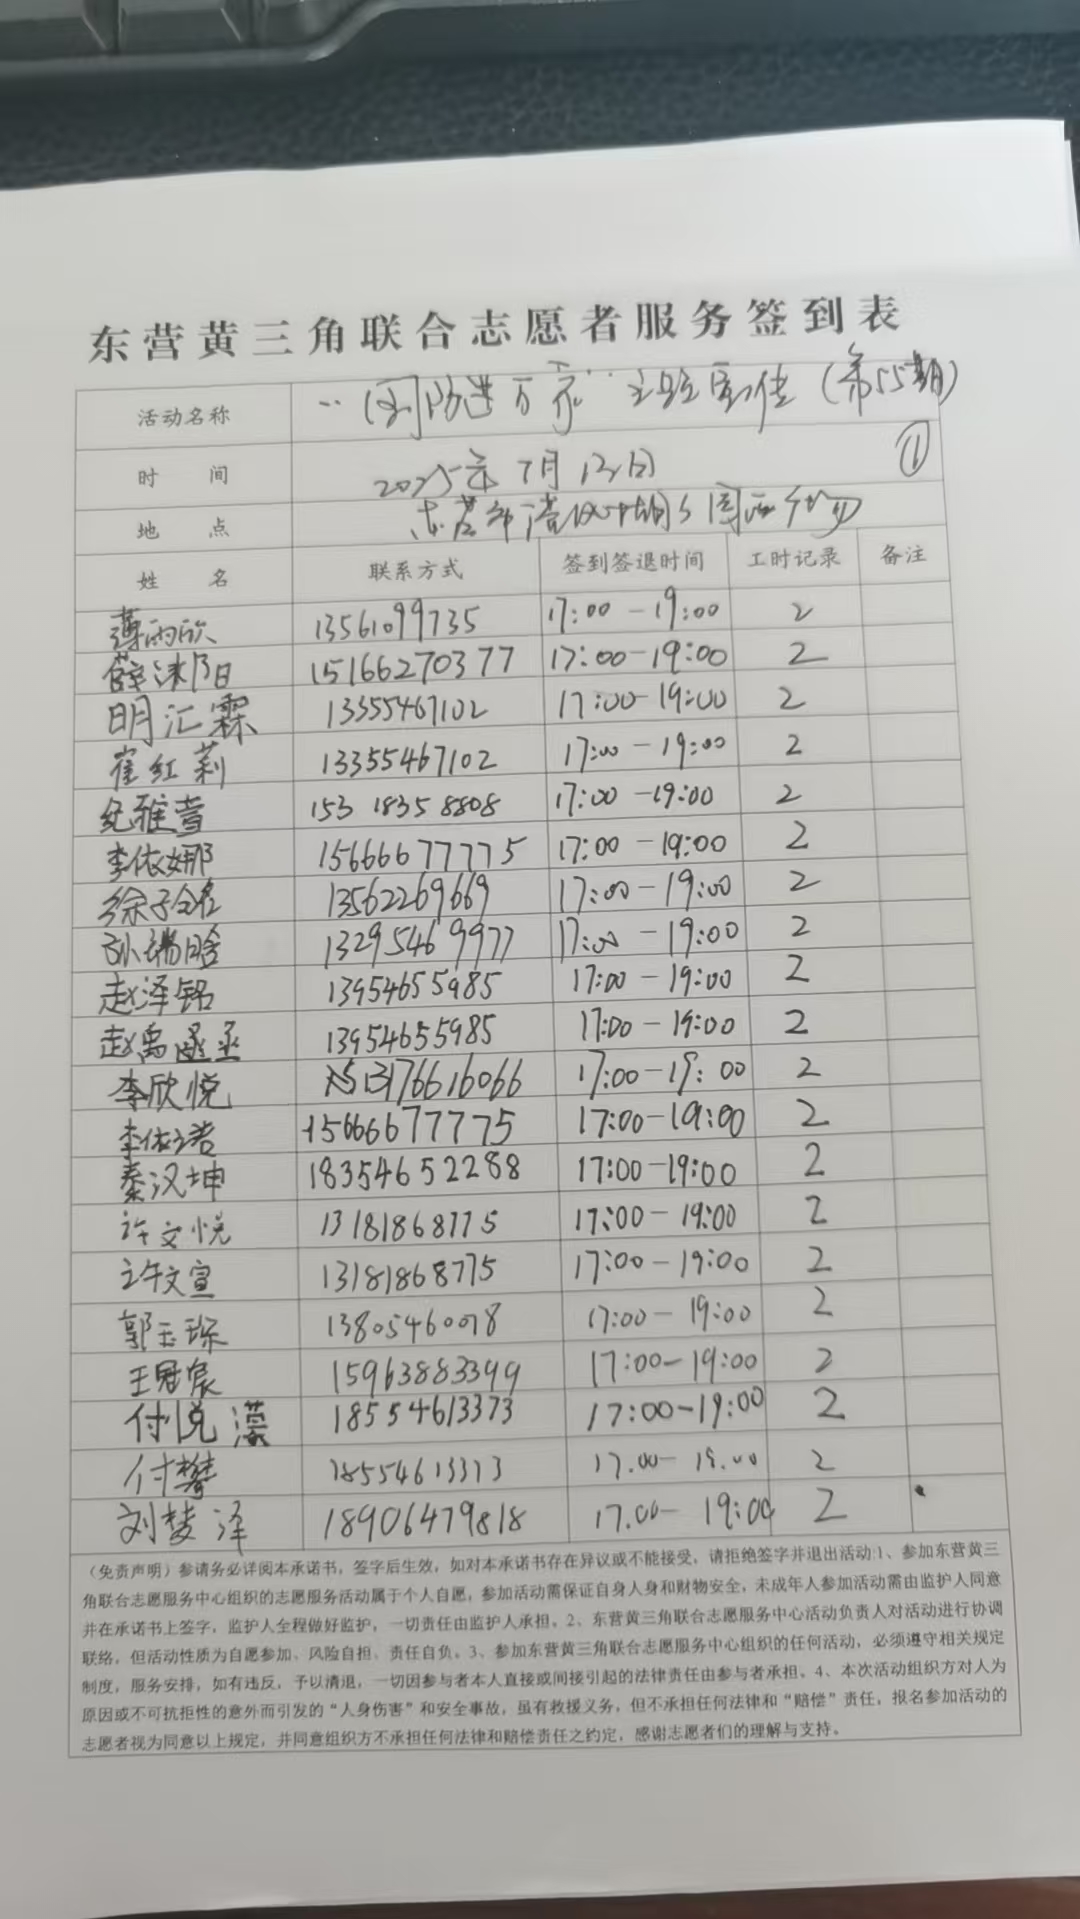 东营黄三角联合志愿者服务签到表
活动名称 “国防进万家”主题宣传(第55期)
①
时 间 2025年7月12日
地 点 东营市
姓 名 联系方式 签到签退时间 工时记录 备注
薄雨欣 13561099735 17:00-19:00 2
薛沫阳 15166270377 17:00-19:00 2
明汇霖 13355467102 17:00-19:00 2
崔红莉 13355467102 17:00-19:00 2
纪雅萱 153 1835 8808 17:00-19:00 2
李依娜 15666677775 17:00-19:00 2
徐子 13562269669 17:00-19:00 2
孙瑞晗 13295469977 17:00-19:00 2
赵泽铭 13954655985 17:00-19:00 2
赵禹丞 13954655985 17:00-19:00 2
李欣悦 13176616066 17:00-19:00 2
李依诺 15666677775 17:00-19:00 2
秦汉坤 18354652288 17:00-19:00 2
许文悦 13181868775 17:00-19:00 2
许文宣 13181868775 17:00-19:00 2
郭玉琛 13805460078 17:00-19:00 2
王冠宸 15963883399 17:00-19:00 2
付悦濛 18554613373 17:00-19:00 2
付攀 18554613373 17.00-19.00 2
刘楚泽 18906479818 17.00-19:00 2
(免责声明)参请务必详阅本承诺书,签字后生效,如对本承诺书存在异议或不能接受,请拒绝签字并退出活动:1、参加东营黄三
角联合志愿服务中心组织的志愿服务活动属于个人自愿,参加活动需保证自身人身和财物安全,未成年人参加活动需由监护人同意
并在承诺书上签字,监护人全程做好监护,一切责任由监护人承担。2、东营黄三角联合志愿服务中心活动负责人对活动进行协调
联络,但活动性质为自愿参加、风险自担、责任自负。3、参加东营黄三角联合志愿服务中心组织的任何活动,必须遵守相关规定
制度,服务安排,如有违反,予以清退,一切因参与者本人直接或间接引起的法律责任由参与者承担。4、本次活动组织方对人为
原因或不可抗拒性的意外而引发的“人身伤害”和安全事故,虽有救援义务,但不承担任何法律和“赔偿”责任,报名参加活动的
志愿者视为同意以上规定,并同意组织方不承担任何法律和赔偿责任之约定,感谢志愿者们的理解与支持。